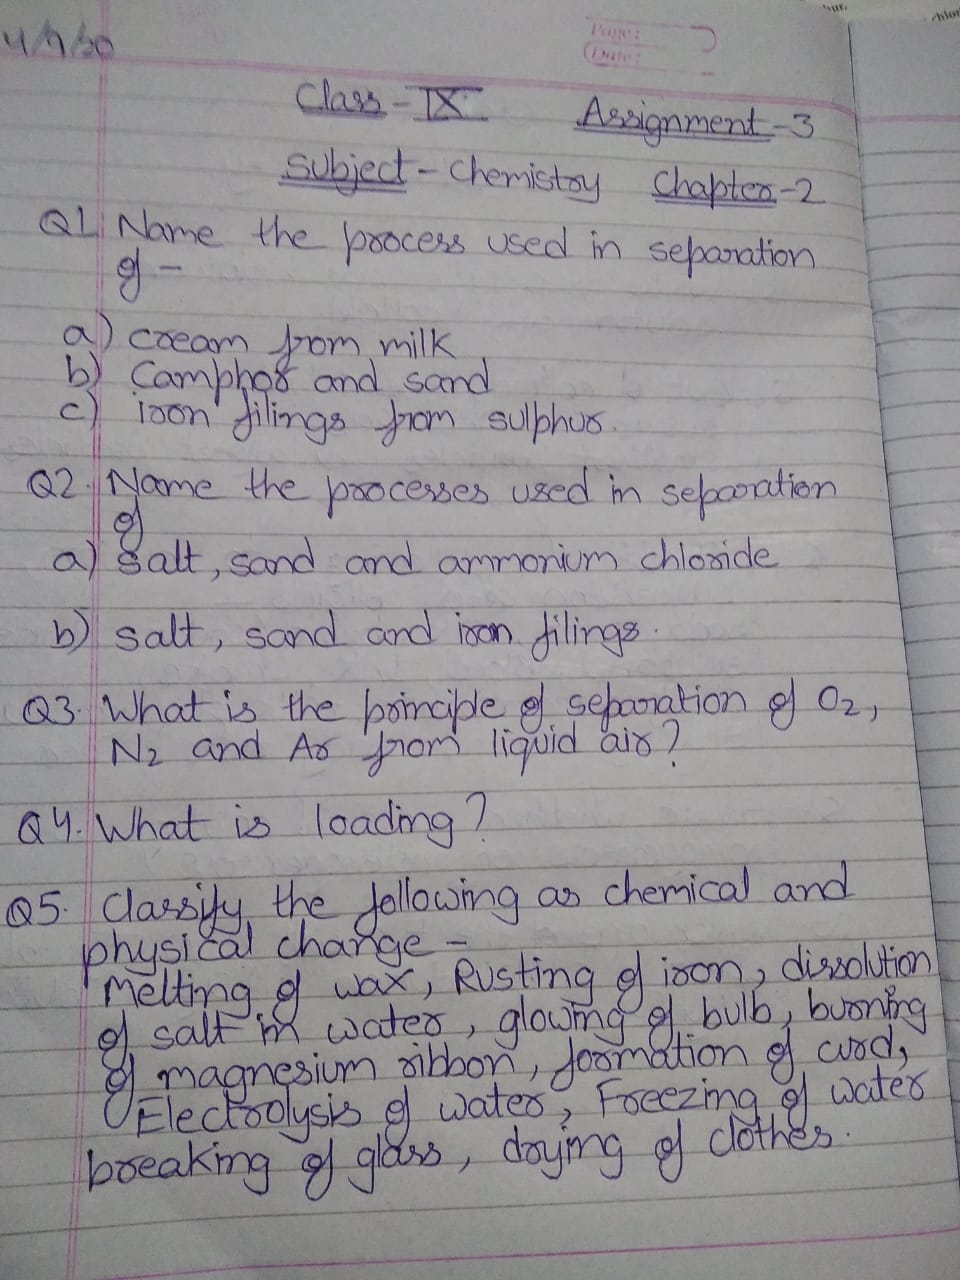 4/7/20
Page:
Date:
Class-IX Assignment-3
Subject - Chemistry Chapter-2
Q1 Name the process used in separation
of -
a) cream from milk
b) Camphor and sand
c) iron filings from sulphur.
Q2. Name the processes used in separation
of
a) salt, sand and ammonium chloride
b) salt, sand and iron filings.
Q3. What is the principle of separation of O2,
N2 and Ar from liquid air?
Q4. What is loading?
Q5. Classify the following as chemical and
physical change -
Melting of wax, Rusting of iron, dissolution
of salt in water, glowing of bulb, burning
of magnesium ribbon, formation of curd,
Electrolysis of water, Freezing of water
breaking of glass, drying of clothes.